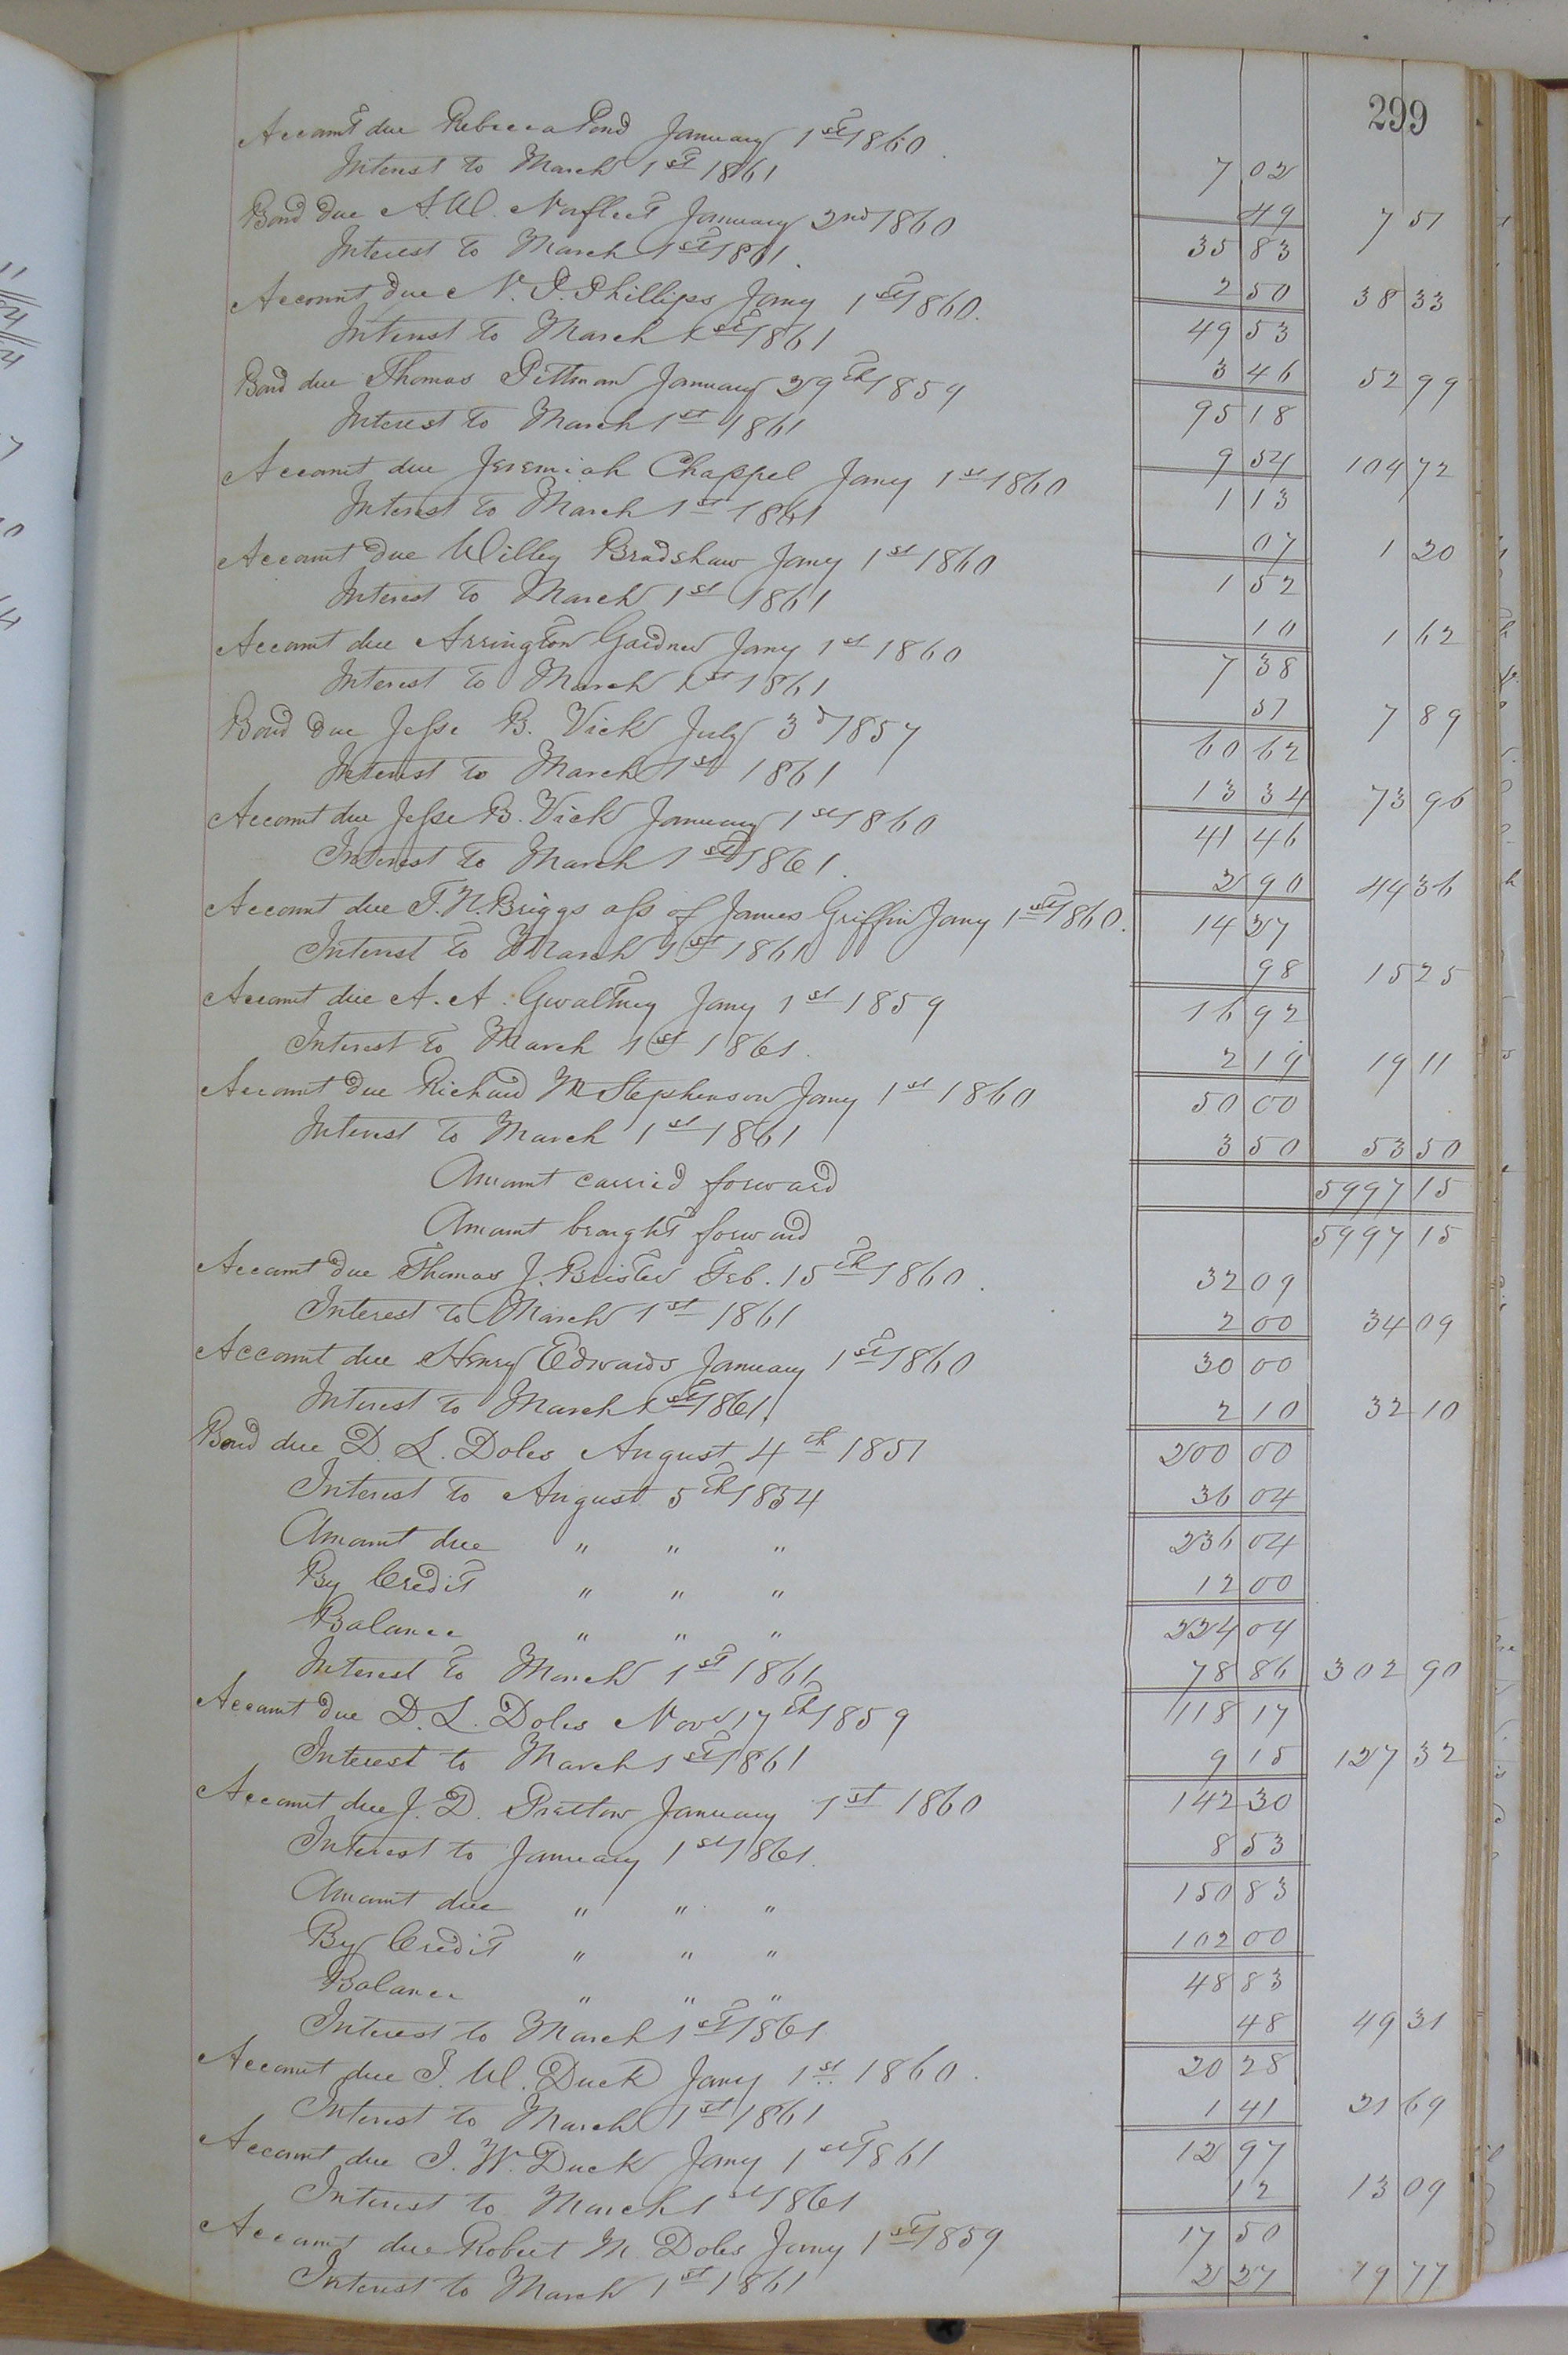 299
Account due Rebecca Pond January 1st 1860. 7 02
Interest to March 1st 1861 49 7 51
Bond due A. W. Norfleet January 2nd 1860 35 83
Interest to March 1st 1861. 2 50 38 33
Account due N. P. Phillips Jany 1st 1860. 49 53
Interest to March 1st 1861 3 46 52 99
Bond due Thomas Pittman January 29th 1859 95 18
Interest to March 1st 1861 9 54 104 72
Account due Jeremiah Chappel Jany 1st 1860 1 13
Interest to March 1st 1861 07 1 20
Account due Willey Bradshaw Jany 1st 1860 1 52
Interest to March 1st 1861 10 1 62
Account due Arrington Gardner Jany 1st 1860 7 38
Interest to March 1st 1861 51 7 89
Bond due Jesse B. Vick July 3d 1857 60 62
Interest to March 1st 1861 13 34 73 96
Account due Jesse B. Vick January 1st 1860 41 46
Interest to March 1st 1861. 2 90 44 36
Account due T. N. Briggs ass of James Griffin Jany 1st 1860. 14 27
Interest to March 1st 1861 98 15 25
Account due A. A. Gwaltney Jany 1st 1859 16 92
Interest to March 1st 1861. 2 19 19 11
Account due Richard M Stephenson Jany 1st 1860 50 00
Interest to March 1st 1861 3 50 53 50
Amount carried forward 5997 15
Amount brought forward 5997 15
Account due Thomas J. Brister Feb. 15th 1860. 32 09
Interest to March 1st 1861 2 00 34 09
Account due Henry Edwards January 1st 1860 30 00
Interest to March 1st 1861 2 10 32 10
Bond due D. L. Doles August 4th 1851 200 00
Interest to August 5th 1854 36 04
Amount due " " " 236 04
By Credit " " " 12 00
Balance " " " 224 04
Interest to March 1st 1861 78 86 302 90
Account due D. L. Doles Novr 17th 1859 118 17
Interest to March 1st 1861 9 15 127 32
Account due J. D. Pretlow January 1st 1860 142 30
Interest to January 1st 1861. 8 53
Amount due " " " 150 83
By Credit " " " 102 00
Balance " " " 48 83
Interest to March 1st 1861 48 49 31
Account due I. W. Duck Jany 1st 1860. 20 28
Interest to March 1st 1861 1 41 21 69
Account due I. W. Duck Jany 1st 1861 12 97
Interest to March 1st 1861 12 13 09
Account due Robert M. Doles Jany 1st 1859 17 50
Interest to March 1st 1861 2 27 19 77